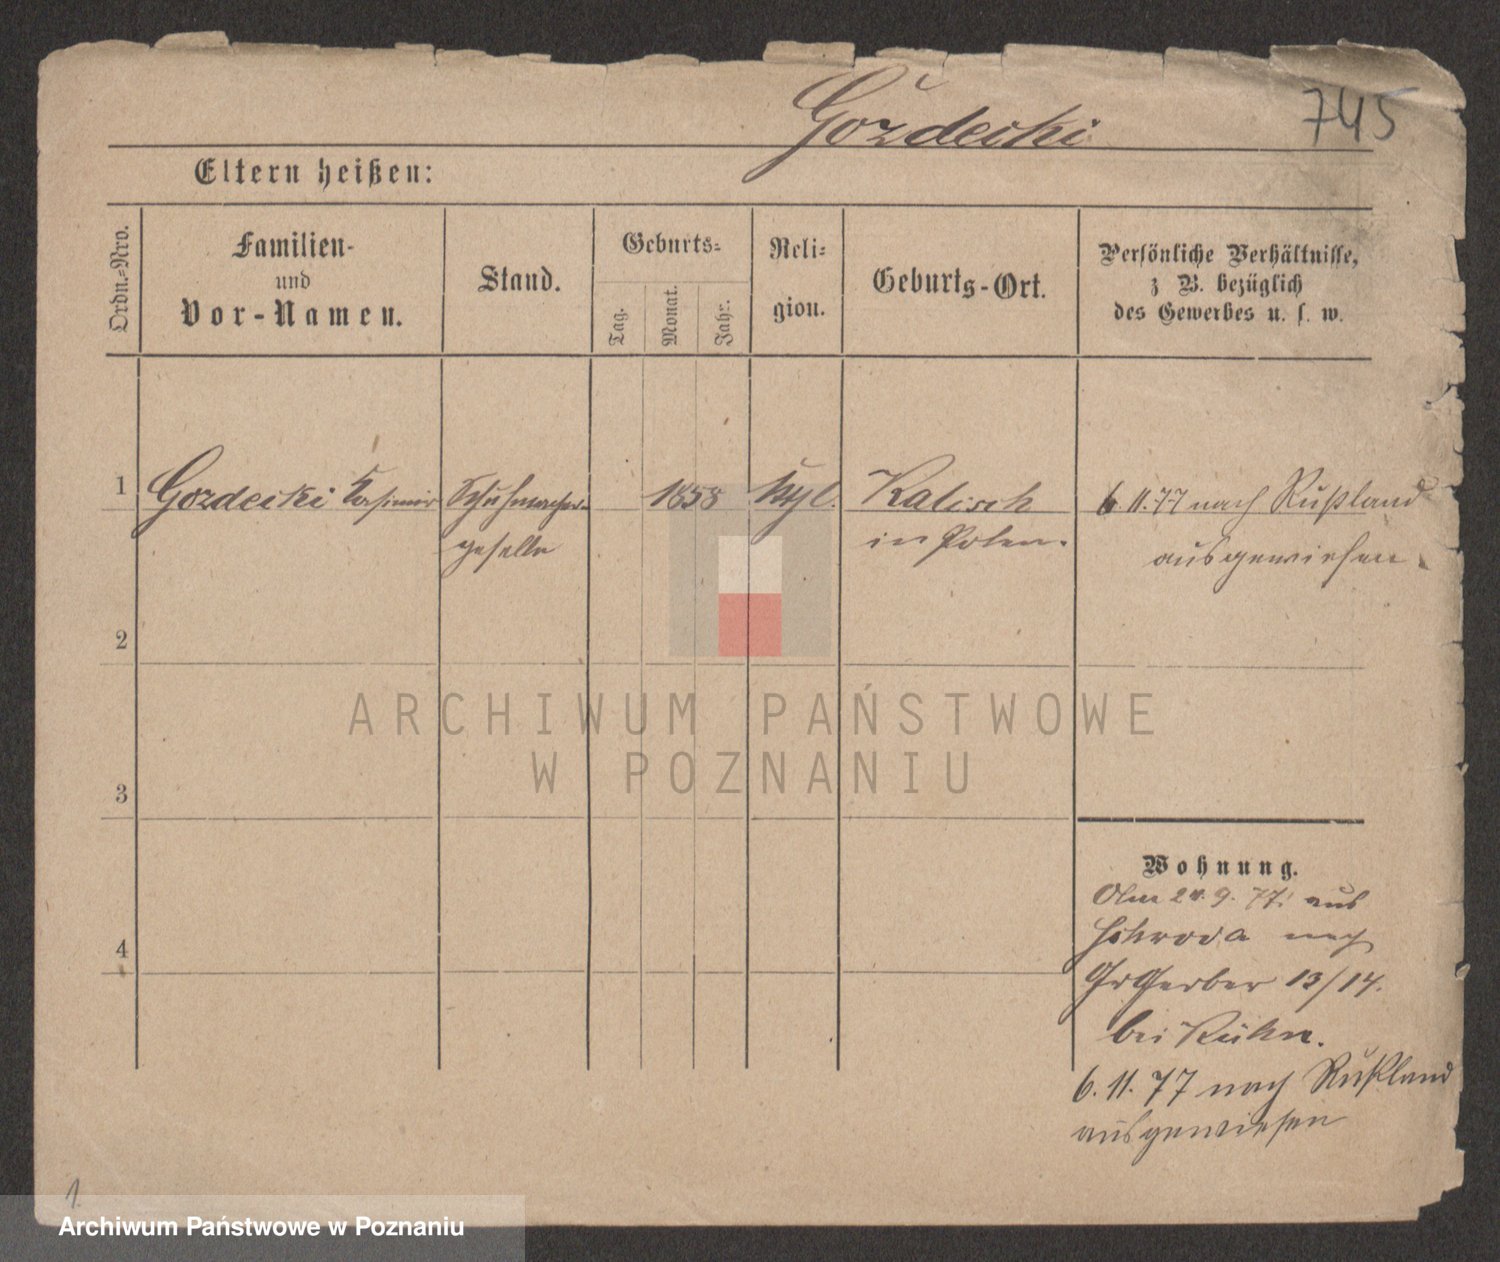 Gozdecki
745
Eltern heißen:
Ordn.-Nro.
Familien-
und
Vor-Namen.
Stand.
Geburts-
Tag.
Monat.
Jahr.
Reli-
gion.
Geburts-Ort.
Persönliche Verhältnisse,
z B. bezüglich
des Gewerbes u. s. w.
1
Gozdecki Casimir
Schuhmacher-
geselle
1858
Kath.
Kalisch
in Polen.
6.11.77 nach Rußland
ausgewiesen.
2
ARCHIWUM PAŃSTWOWE
W POZNANIU
3
Wohnung.
9. 77. aus
Schroda nach
Gr Gerber 13/14.
bei Kühn.
4
6. 11. 77 nach Rußland
ausgewiesen
1.
Archiwum Państwowe w Poznaniu